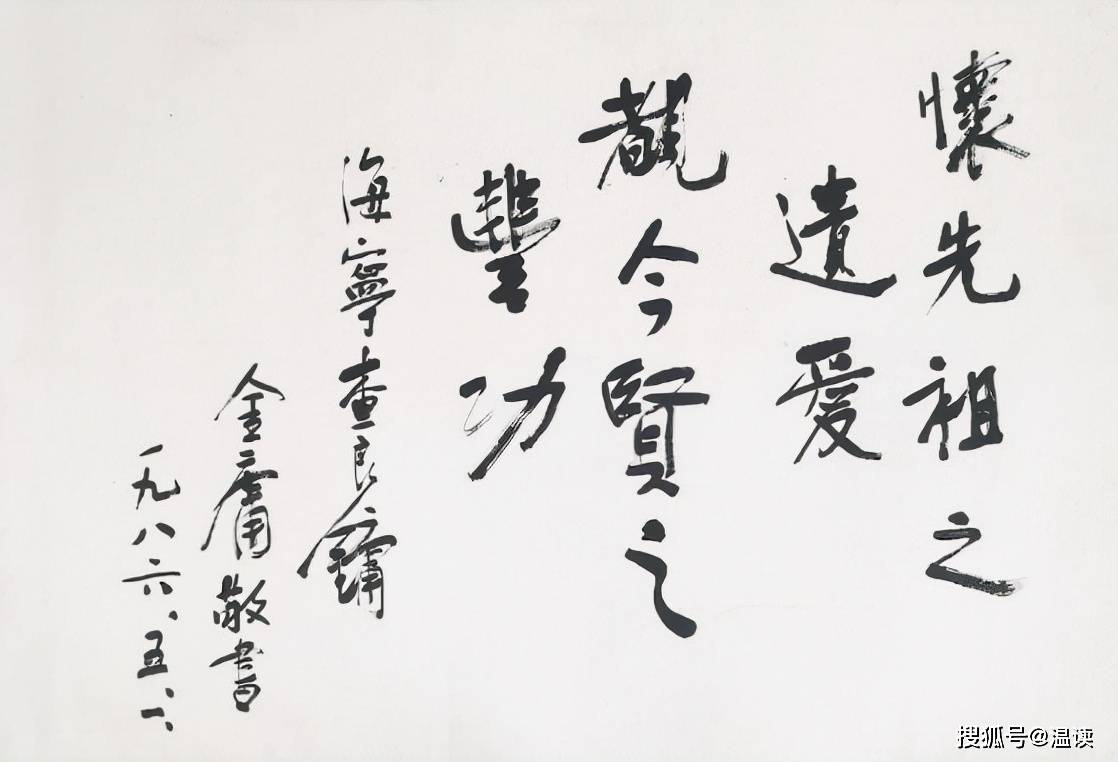 懷先祖之
遺爱
觀今賢之
豐功
海寧查良鏞
金庸敬書
一九八六、五、一、
搜狐号@温读